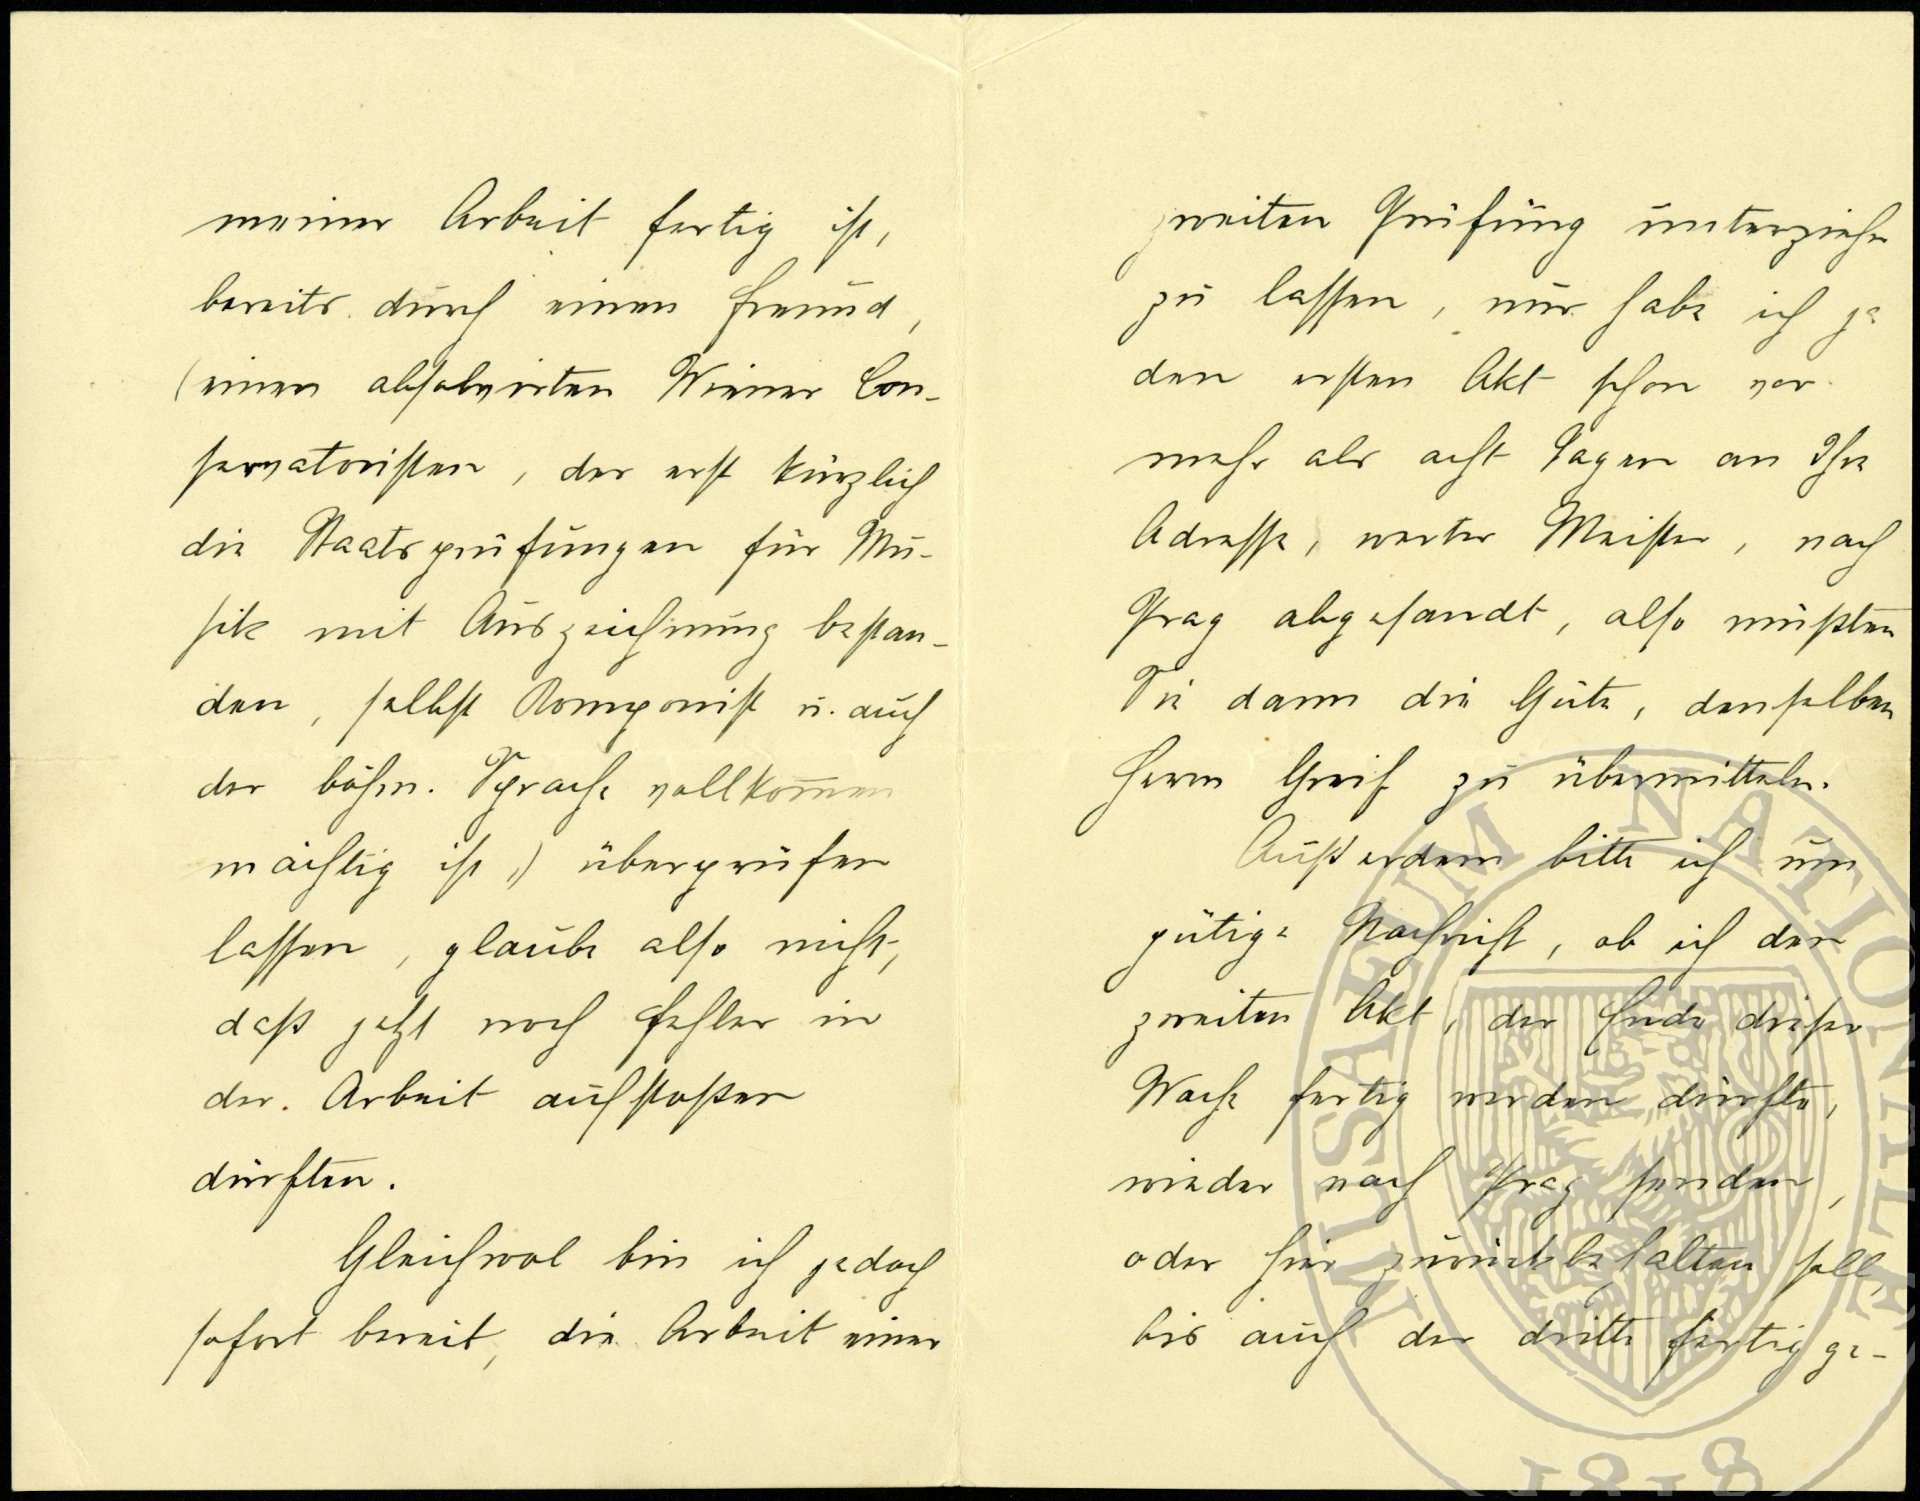 meiner Arbeit fertig ist,
bereits durch einen Freund,
(einen absolvirten Wiener Con-
servatoristen, der erst kürzlich
die Staatsprüfungen für Mu-
sik mit Auszeichnung bestan-
den, selbst Komponist u. auch
der böhm. Sprache vollkom̅en
mächtig ist,) überprüfen
lassen, glaube also nicht,
daß jetzt noch Fehler in
der Arbeit aufstoßen
dürften.
Gleichwol bin ich jedoch
sofort bereit, die Arbeit einer
zweiten Prüfung unterziehn
zu lassen, nur habe ich ja
den ersten Akt schon vor
mehr als acht Tagen an Ihre
Adresse, werter Meister, nach
Prag abgesandt, also müßten
Sie dann die Güte, denselben
Herrn Greif zu übermitteln.
Außerdem bitte ich um
gütige Nachricht, ob ich den
zweiten Akt, der Ende dieser
Woche fertig werden dürfte,
wieder nach Prag senden,
oder hier zurückbehalten soll,
bis auch der dritte fertig ge-
MUSAEUM NATIONALE
1818